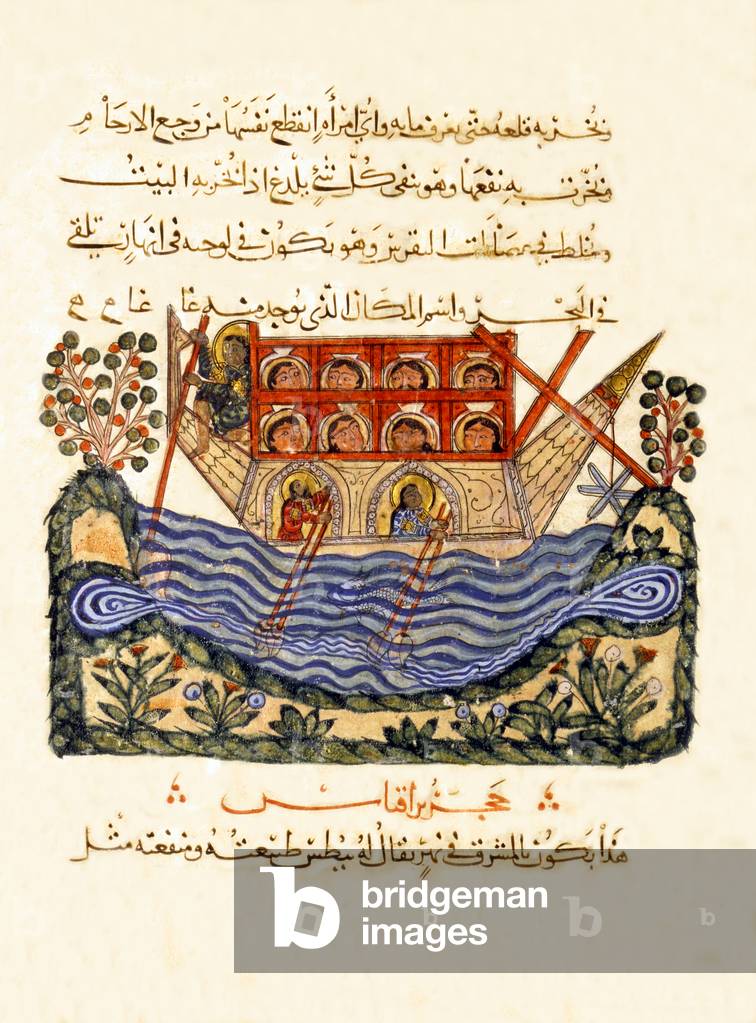 به قلعه حتى يعرف مابه وأيّ امرأةٍ انقطع نَفَسُهَا من وَجع الارحام
به نفعها وهو ينفى كُلّ شئٍ يلدغ اذا بُخّر به البيتُ
النقرس وَهو يكون فى لوحيه فى انهارٍ تلقى
فى البَحْر واسم المكان الّذى يوجد منه غا غا م م
حجر براقياس
هذا يكون بالمشرق فى نهرٍ يقال لهُ طبيعتهُ ومنفعته مثل
bridgeman
images